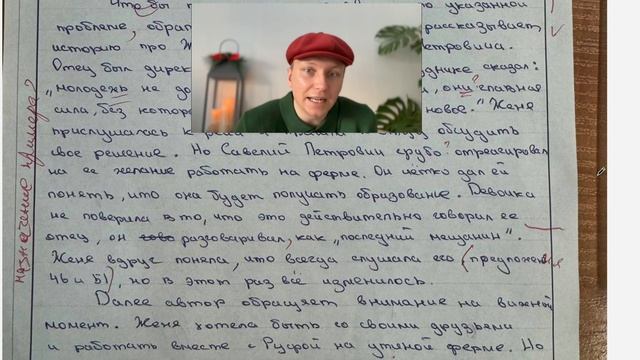 Что бы по указанной
проблеме, обрат рассказывает
историю про Ж етровича.
Отец был дирек зднике сказал:
„молодежь не до , они главная
сила, без котор новое." Женя
прислушалась к обсудить
свое решение. Но Савелий Петрович грубо отреагировал
на её желание работать на ферме. Он чётко дал ей
понять, что она будет получать образование. Девочка
не поверила в то, что это действительно говорил её
отец, он разговаривал, как „последний мещанин".
Женя вдруг поняла, что всегда слушала его (предложения
46 и 51), но в этот раз всё изменилось.
Далее автор обращает внимание на важной
момент. Женя хотела быть со своими друзьями
и работать вместе с Руфой на утиной ферме. Но
назначение примера?